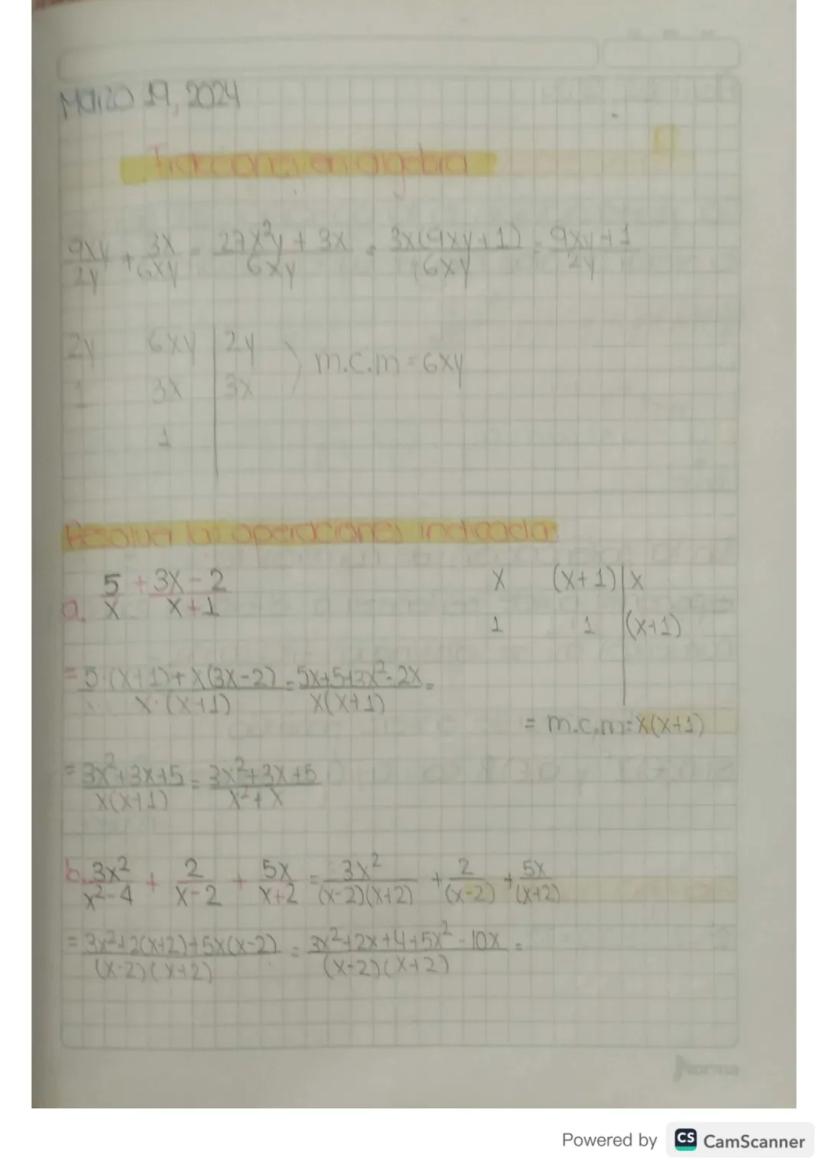 Marzo 19, 2024
Fracciones en algebra
9xy/2y + 3x/6xy = 27x²y + 3x/6xy = 3x(9xy+1)/6xy = 9xy+1/2y
2y 6xy | 2y
1 3x | 3x } m.c.m = 6xy
1
Resolver las operaciones indicada
a. 5/x + 3x-2/x+1
x (x+1) | x
1 1 | (x+1)
= 5·(x+1)+x(3x-2)/x·(x+1) = 5x+5+3x²-2x/x(x+1) =
= m.c.m: x(x+1)
= 3x²+3x+5/x(x+1) = 3x²+3x+5/x²+x
b. 3x²/x²-4 + 2/x-2 + 5x/x+2 = 3x²/(x-2)(x+2) + 2/(x-2) + 5x/(x+2)
= 3x²+2(x+2)+5x(x-2)/(x-2)(x+2) = 3x²+2x+4+5x²-10x/(x-2)(x+2) =
Norma
Powered by CS CamScanner